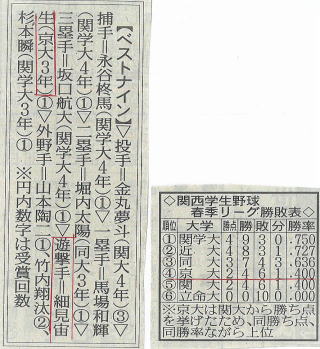 【ベストナイン】▽投手＝金丸夢斗(関大4年)③▽
捕手＝永谷柊馬(関学大4年)①▽一塁手＝馬場和輝
(関学大4年)①▽二塁手＝堀内太陽(同大3年)①▽
三塁手＝坂口航大(関学大4年)①▽遊撃手＝細見宙
生(京大3年)①▽外野手＝山本陶二①竹内翔汰②
杉本瞬(関学大3年)① ※円内数字は受賞回数
◇関西学生野球
春季リーグ勝敗表◇
順位 大学 勝点 勝 敗 分 勝率
①関学大 4 9 3 0 .750
②近 大 4 8 3 1 .727
③同 大 3 7 4 3 .636
④京 大 2 4 6 1 .400
⑤関 大 2 4 6 1 .400
⑥立命大 0 0 10 0 .000
※京大は関大から勝ち点
を挙げたため、同勝ち点、
同勝率ながら上位